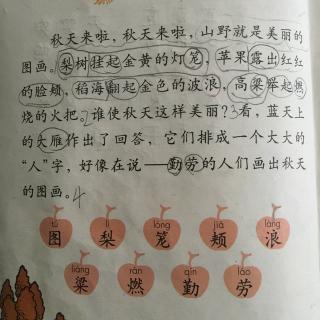 秋天来啦，秋天来啦，山野就是美丽的
图画。梨树挂起金黄的灯笼，苹果露出红红
的脸颊，稻海翻起金色的波浪，高粱举起燃
烧的火把。2谁使秋天这样美丽？3看，蓝天上
的大雁作出了回答，它们排成一个大大的
“人”字，好像在说——勤劳的人们画出秋天
的图画。4
tú lí lóng jiá làng
图 梨 笼 颊 浪
liáng rán qín láo
梁 燃 勤 劳